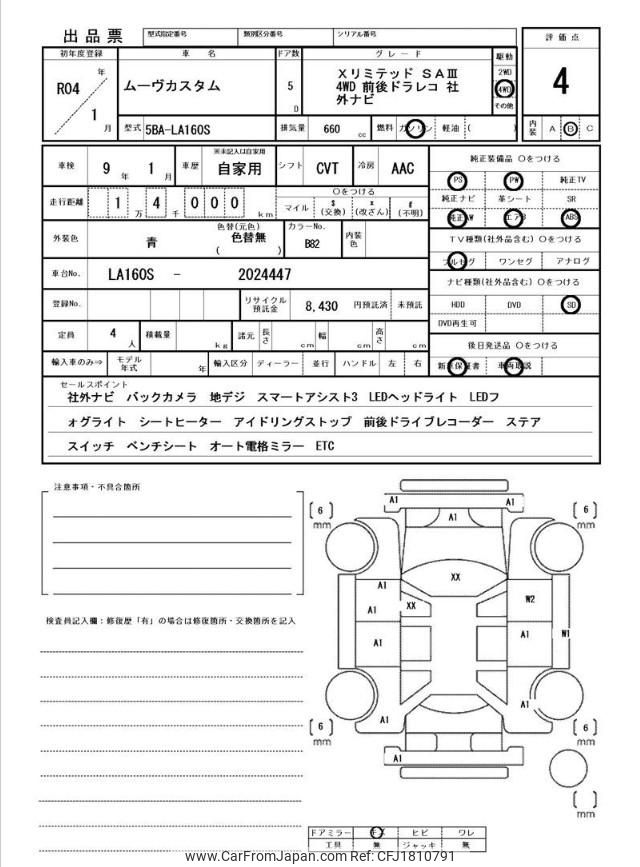 出品票
型式指定番号
類別区分番号
シリアル番号
評価点
4
初年度登録
車名
ドア数
グレード
駆動
R04
年
1
月
ムーヴカスタム
5
D
Xリミテッド SAⅢ
4WD 前後ドラレコ 社
外ナビ
2WD
4WD
その他
型式
5BA-LA160S
排気量
660
cc
燃料
ガソリン
軽油
(
)
内装
A
B
C
車検
9
年
1
月
車歴
※未記入は自家用
自家用
シフト
CVT
冷房
AAC
純正装備品 ○をつける
PS
PW
純正TV
純正ナビ
革シート
SR
純正AW
エアB
ABS
走行距離
1
万
4
千
0
0
0
km
○をつける
マイル
$
(交換)
x
(改ざん)
#
(不明)
TV種類(社外品含む) ○をつける
フルセグ
ワンセグ
アナログ
外装色
青
色替(元色)
色替無
(
)
カラーNo.
B82
内装色
ナビ種類(社外品含む) ○をつける
HDD
DVD
SD
DVD再生可
車台No.
LA160S
-
2024447
登録No.
リサイクル
預託金
8,430
円預託済
未預託
後日発送品 ○をつける
新車保証書
車両取説
定員
4
人
積載量
kg
諸元
長さ
cm
幅
cm
高さ
cm
輸入車のみ⇒
モデル
年式
年
輸入区分
ディーラー
並行
ハンドル
左
右
セールスポイント
社外ナビ バックカメラ 地デジ スマートアシスト3 LEDヘッドライト LEDフ
ォグライト シートヒーター アイドリングストップ 前後ドライブレコーダー ステア
スイッチ ベンチシート オート電格ミラー ETC
注意事項・不具合箇所
検査員記入欄：修復歴「有」の場合は修復箇所・交換箇所を記入
[ 6 ]
mm
A1
A1
A1
[ 6 ]
mm
XX
A1
XX
A1
W2
A1
A1
W1
A1
A1
[ 6 ]
mm
[ 6 ]
mm
A1
[ ]
mm
ドアミラー
キズ
ヒビ
ワレ
工具
無
ジャッキ
無
www.CarFromJapan.com Ref: CFJ1810791